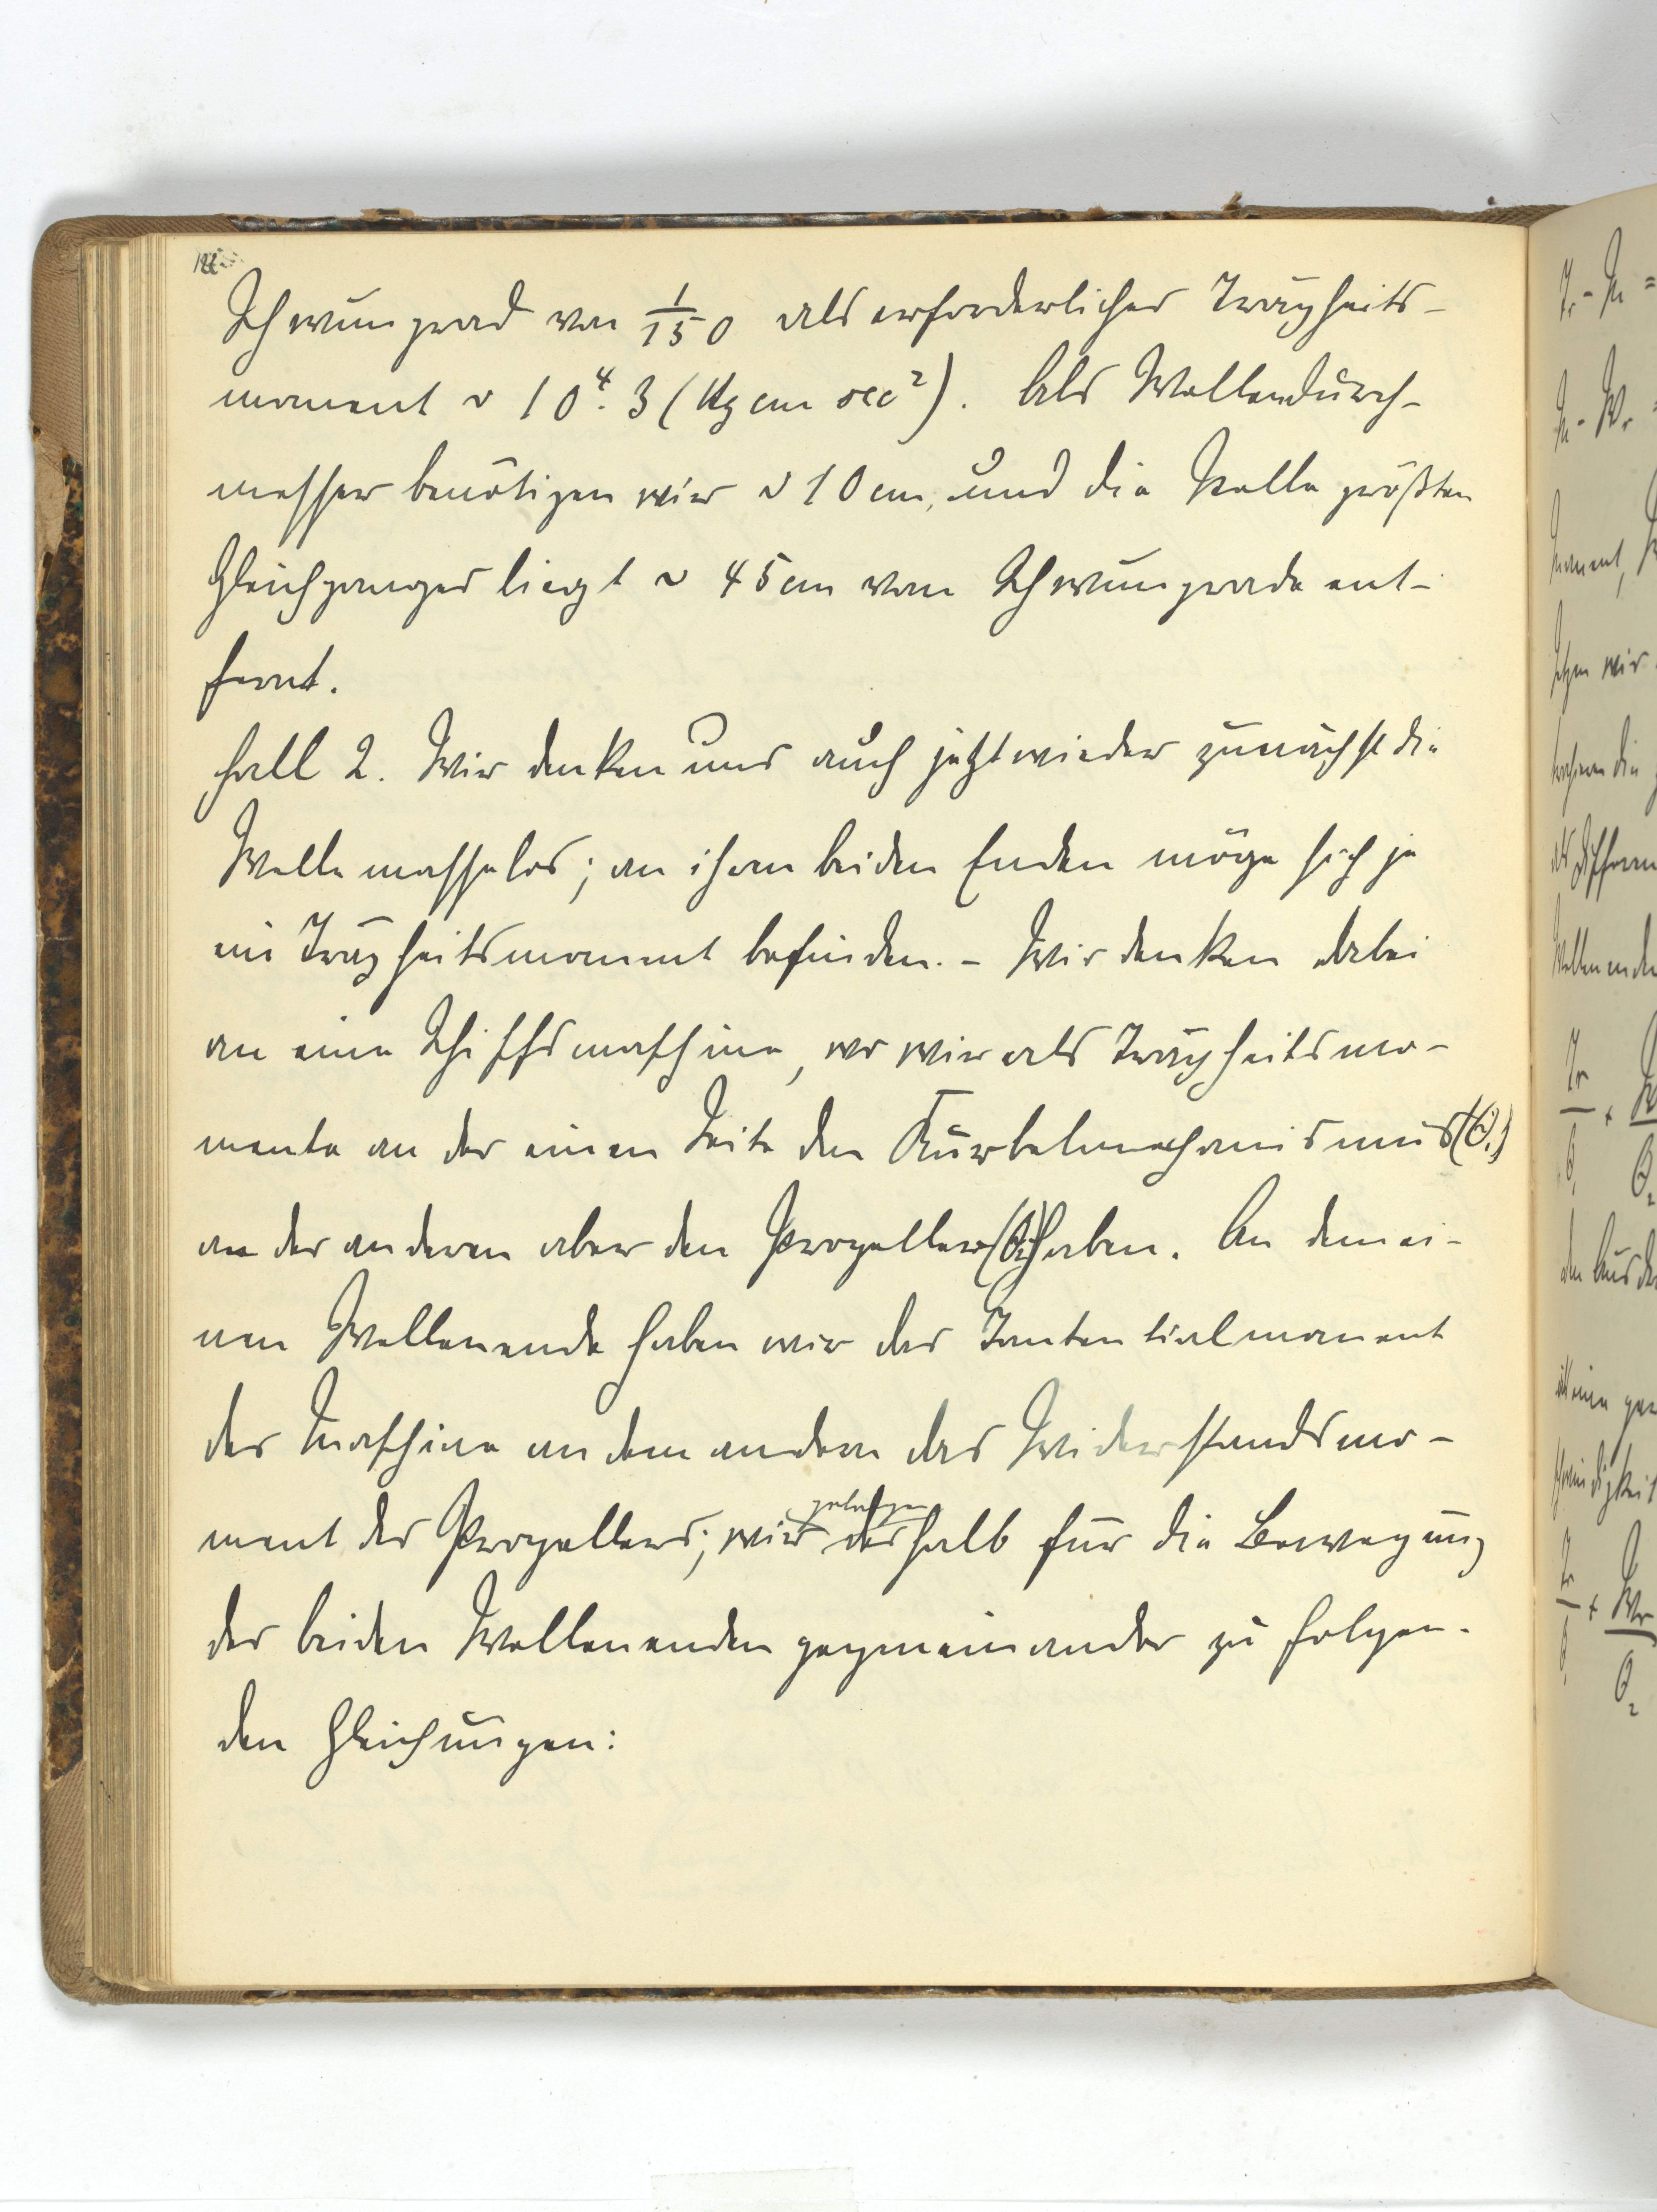 Schwungrad von 1/150 als erforderliches Trägheits-
moment ~ 10⁴·3 (Kg cm sec²). Als Wellendurch-
messer benötigen wir ~ 10 cm, und die Stelle größten
Gleichganges liegt ~ 45 cm vom Schwungrade ent-
fernt.
Fall 2. Wir denken uns auch jetzt wieder zunächst die
Welle masselos; an ihren beiden Enden möge sich je
ein Trägheitsmoment befinden. – Wir denken dabei
an eine Schiffsmaschine, wo wir als Trägheitsmo-
mente an der einen Seite den Kurbelmechanismus (Θ₁)
an der anderen aber den Propeller (Θ₂) haben. An dem ei-
nen Wellenende haben wir das Tantentialmoment
der Maschine an dem andern das Widerstandsmo-
ment des Propellers; wir gelangen deshalb für die Bewegung
der beiden Wellenenden gegeneinander zu folgen-
den Gleichungen:
Tr - M =
M - Wr
moment,
setzen wir
Wellenende
Tr + W
Θ₁ Θ₂
Tr + Wr
Θ₁ Θ₂